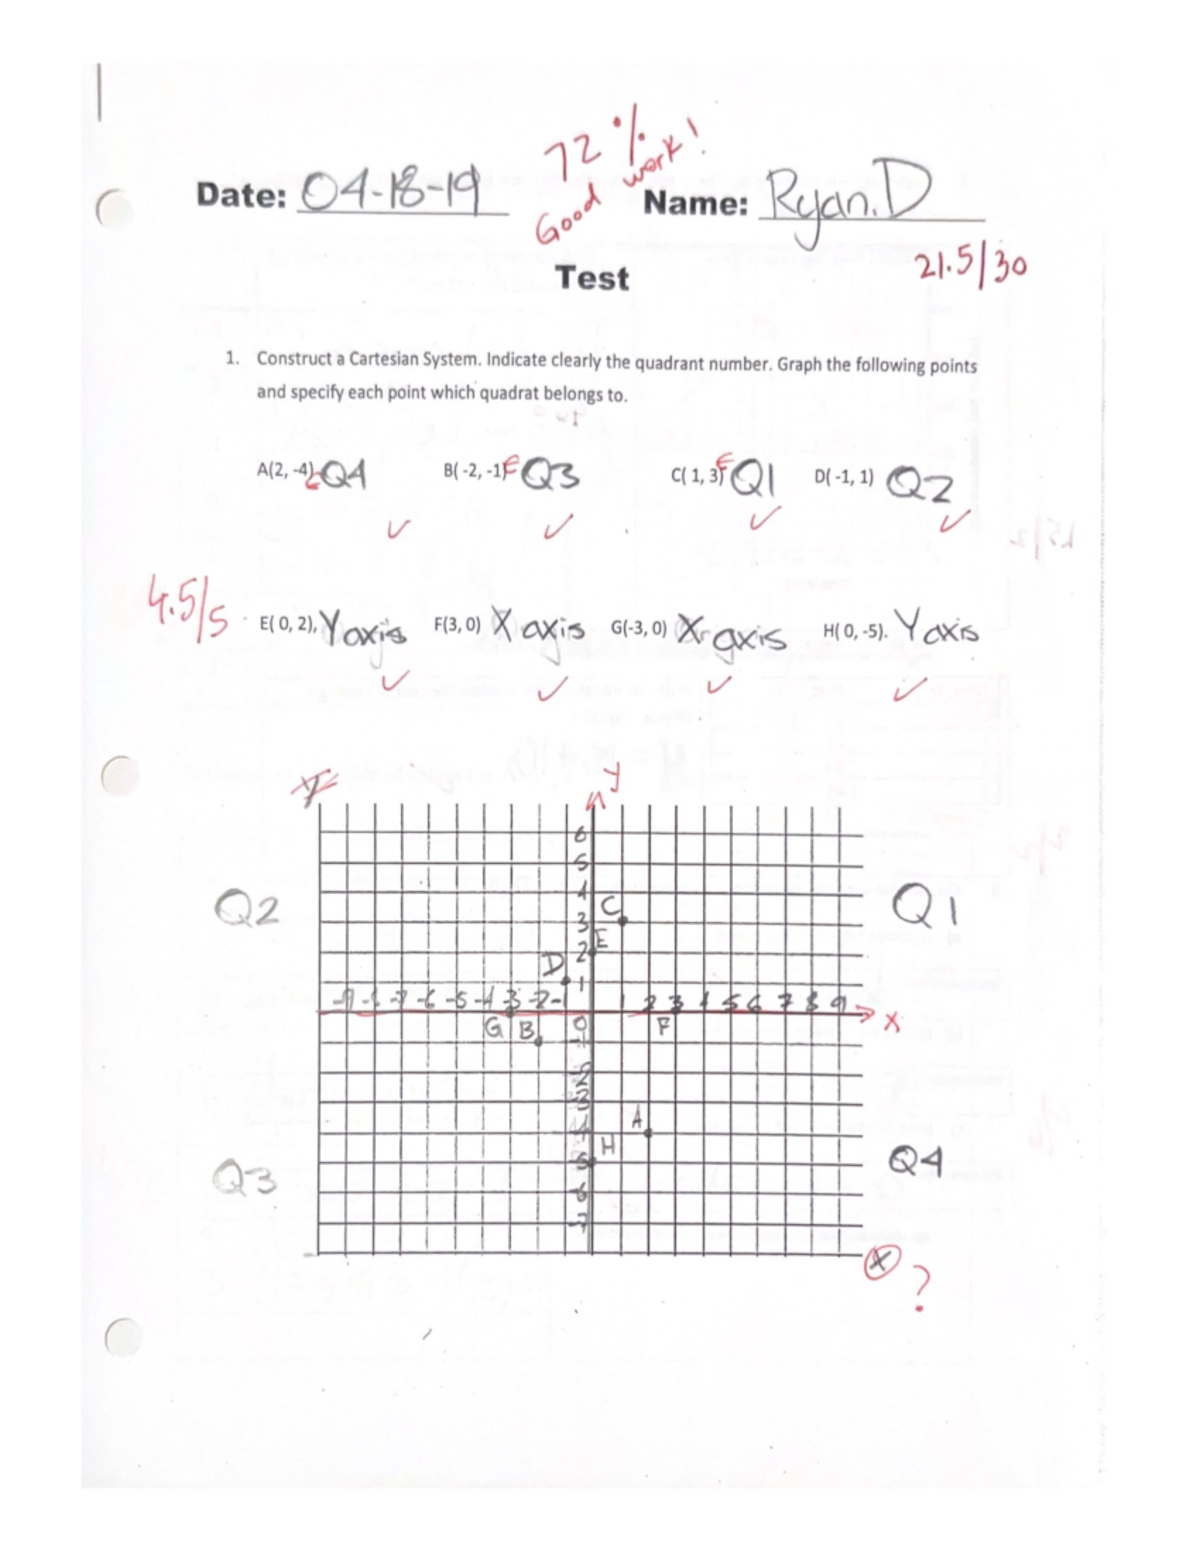 72%
Good work!
Date: 04-18-19 Name: Ryan.D
21.5/30
Test
1. Construct a Cartesian System. Indicate clearly the quadrant number. Graph the following points
and specify each point which quadrat belongs to.
A(2, -4) ∈ Q4 B( -2, -1) ∈ Q3 C( 1, 3) ∈ Q1 D( -1, 1) Q2
4.5/5
E( 0, 2), Y axis F(3, 0) X axis G(-3, 0) X axis H( 0, -5). Y axis
Y y
6
5
Q2 4 C Q1
3
E
2
D
1
-9 -7 -6 -5 -4 -3 -2 -1 1 2 3 4 5 6 7 8 9
x
G B 0 F
-1
-2
-3
A
-4
H
Q3 -5 Q4
-6
-7
X ?